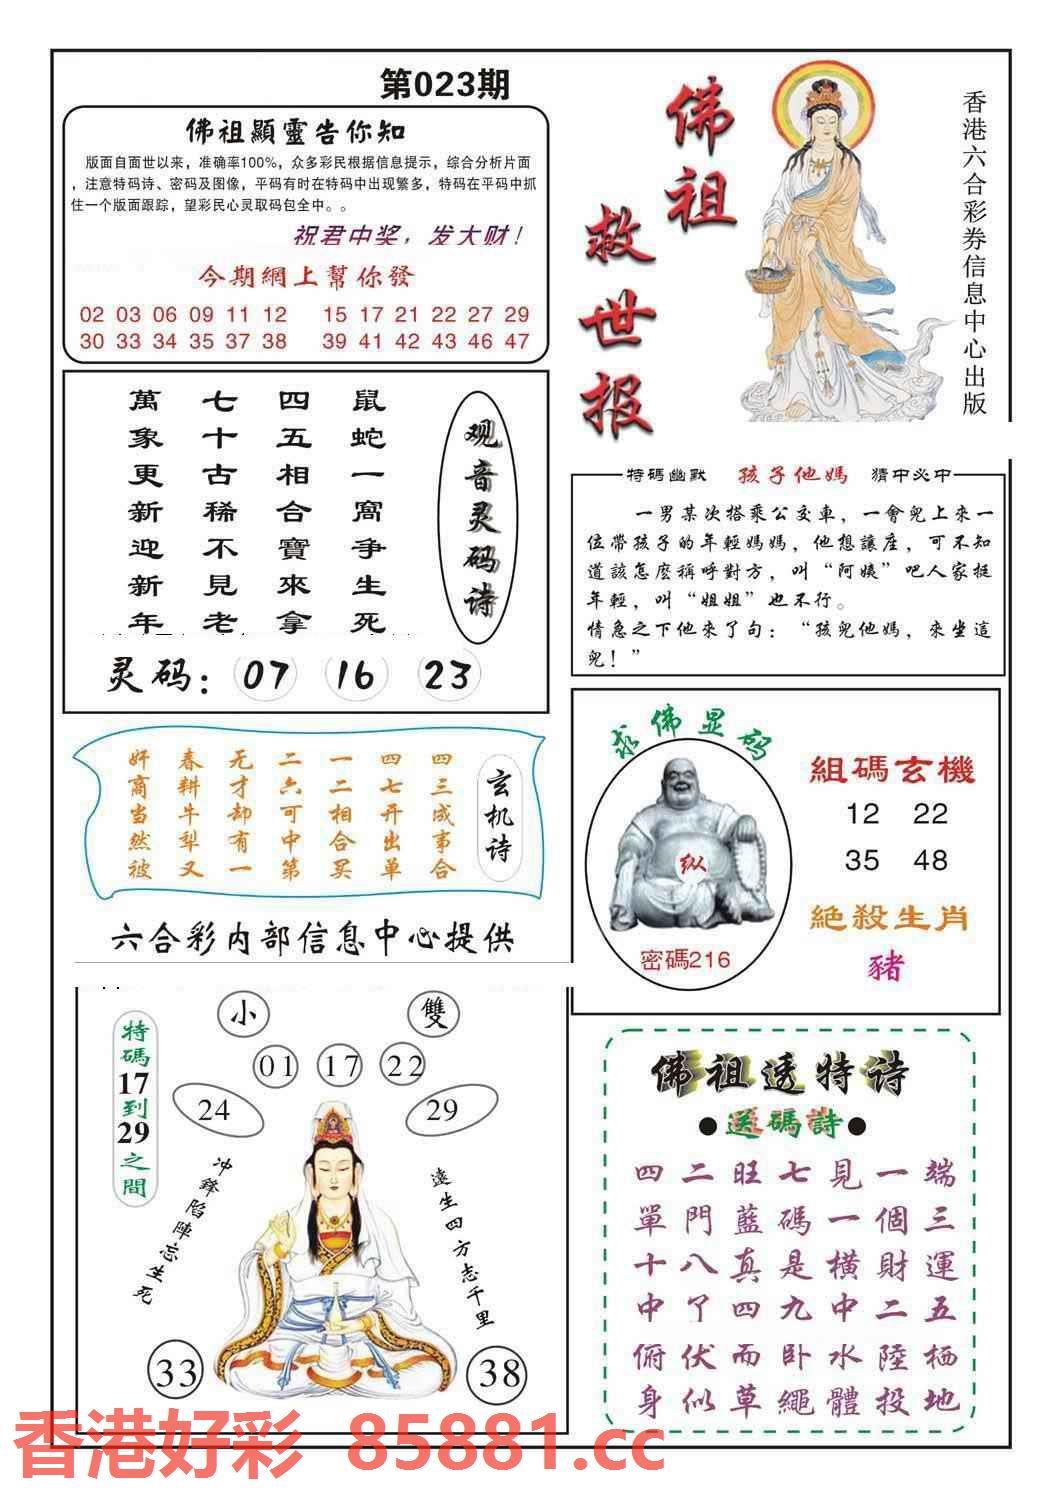 第023期
佛祖顯靈告你知
版面自面世以来，准确率100%，众多彩民根据信息提示，综合分析片面
，注意特码诗、密码及图像，平码有时在特码中出现繁多，特码在平码中抓
住一个版面跟踪，望彩民心灵取码包全中。。
祝君中奖，发大财！
今期網上幫你發
02 03 06 09 11 12 15 17 21 22 27 29
30 33 34 35 37 38 39 41 42 43 46 47
佛祖
救世报
香港六合彩券信息中心出版
观音灵码诗
鼠蛇一窩争生死
四五相合寶來拿
七十古稀不見老
萬象更新迎新年
灵码：07 16 23
特碼幽默 孩子他媽 猜中必中
一男某次搭乘公交車，一會兒上來一
位帶孩子的年輕媽媽，他想讓座，可不知
道該怎麼稱呼對方，叫“阿姨”吧人家挺
年輕，叫“姐姐”也不行。
情急之下他來了句：“孩兒他媽，來坐這
兒！”
玄机诗
四三成事合
四七开出单
一二相合买
二六可中第
无才却有一
春耕牛犁又
奸商当然彼
六合彩内部信息中心提供
求佛显码
纵
密碼216
組碼玄機
12 22
35 48
絶殺生肖
豬
特碼17到29之間
小 雙
01 17 22
24 29
冲鋒陷陣忘生死
遠生四方志千里
33 38
佛祖透特诗
●送碼詩●
四二旺七見一端
單門藍碼一個三
十八真是横財運
中了四九中二五
俯伏而卧水陸栖
身似草繩體投地
香港好彩 85881.cc